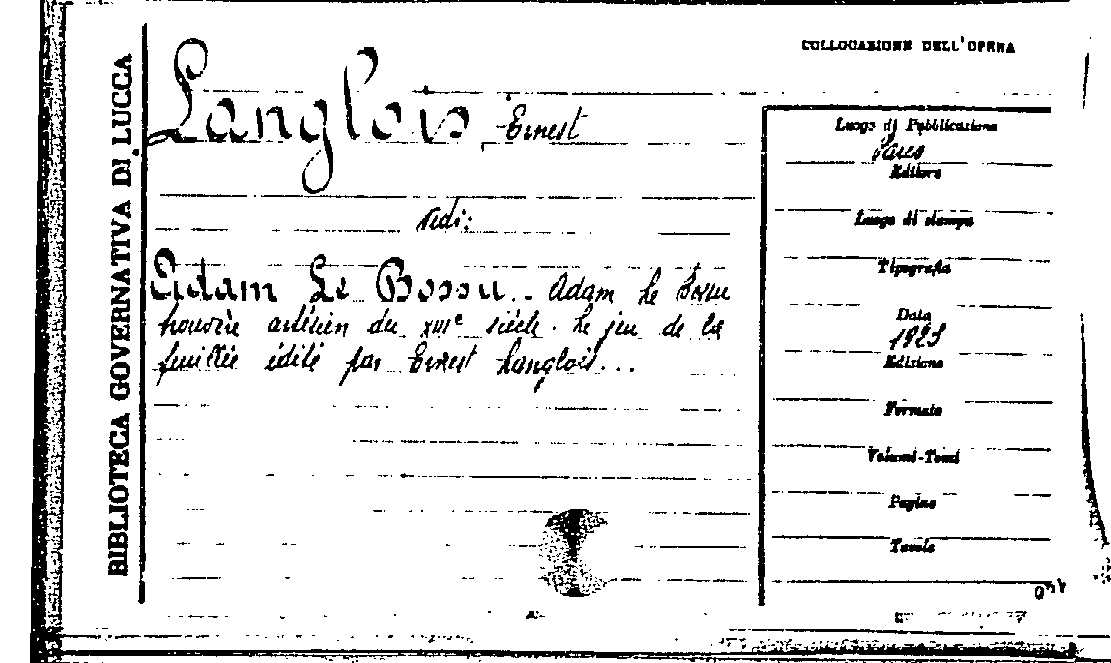 BIBLIOTECA GOVERNATIVA DI LUCCA
COLLOCAZIONE DELL'OPERA
Langlois, Ernest
vedi:
Adam Le Bossu.. Adam le Bossu
trouvère artésien du XIIIe siècle. Le jeu de la
feuillée édité par Ernest Langlois...
Luogo di Pubblicazione
Paris
Editore
Luogo di stampa
Tipografia
Data
1923
Edizione
Formato
Volumi-Tomi
Pagine
Tavole